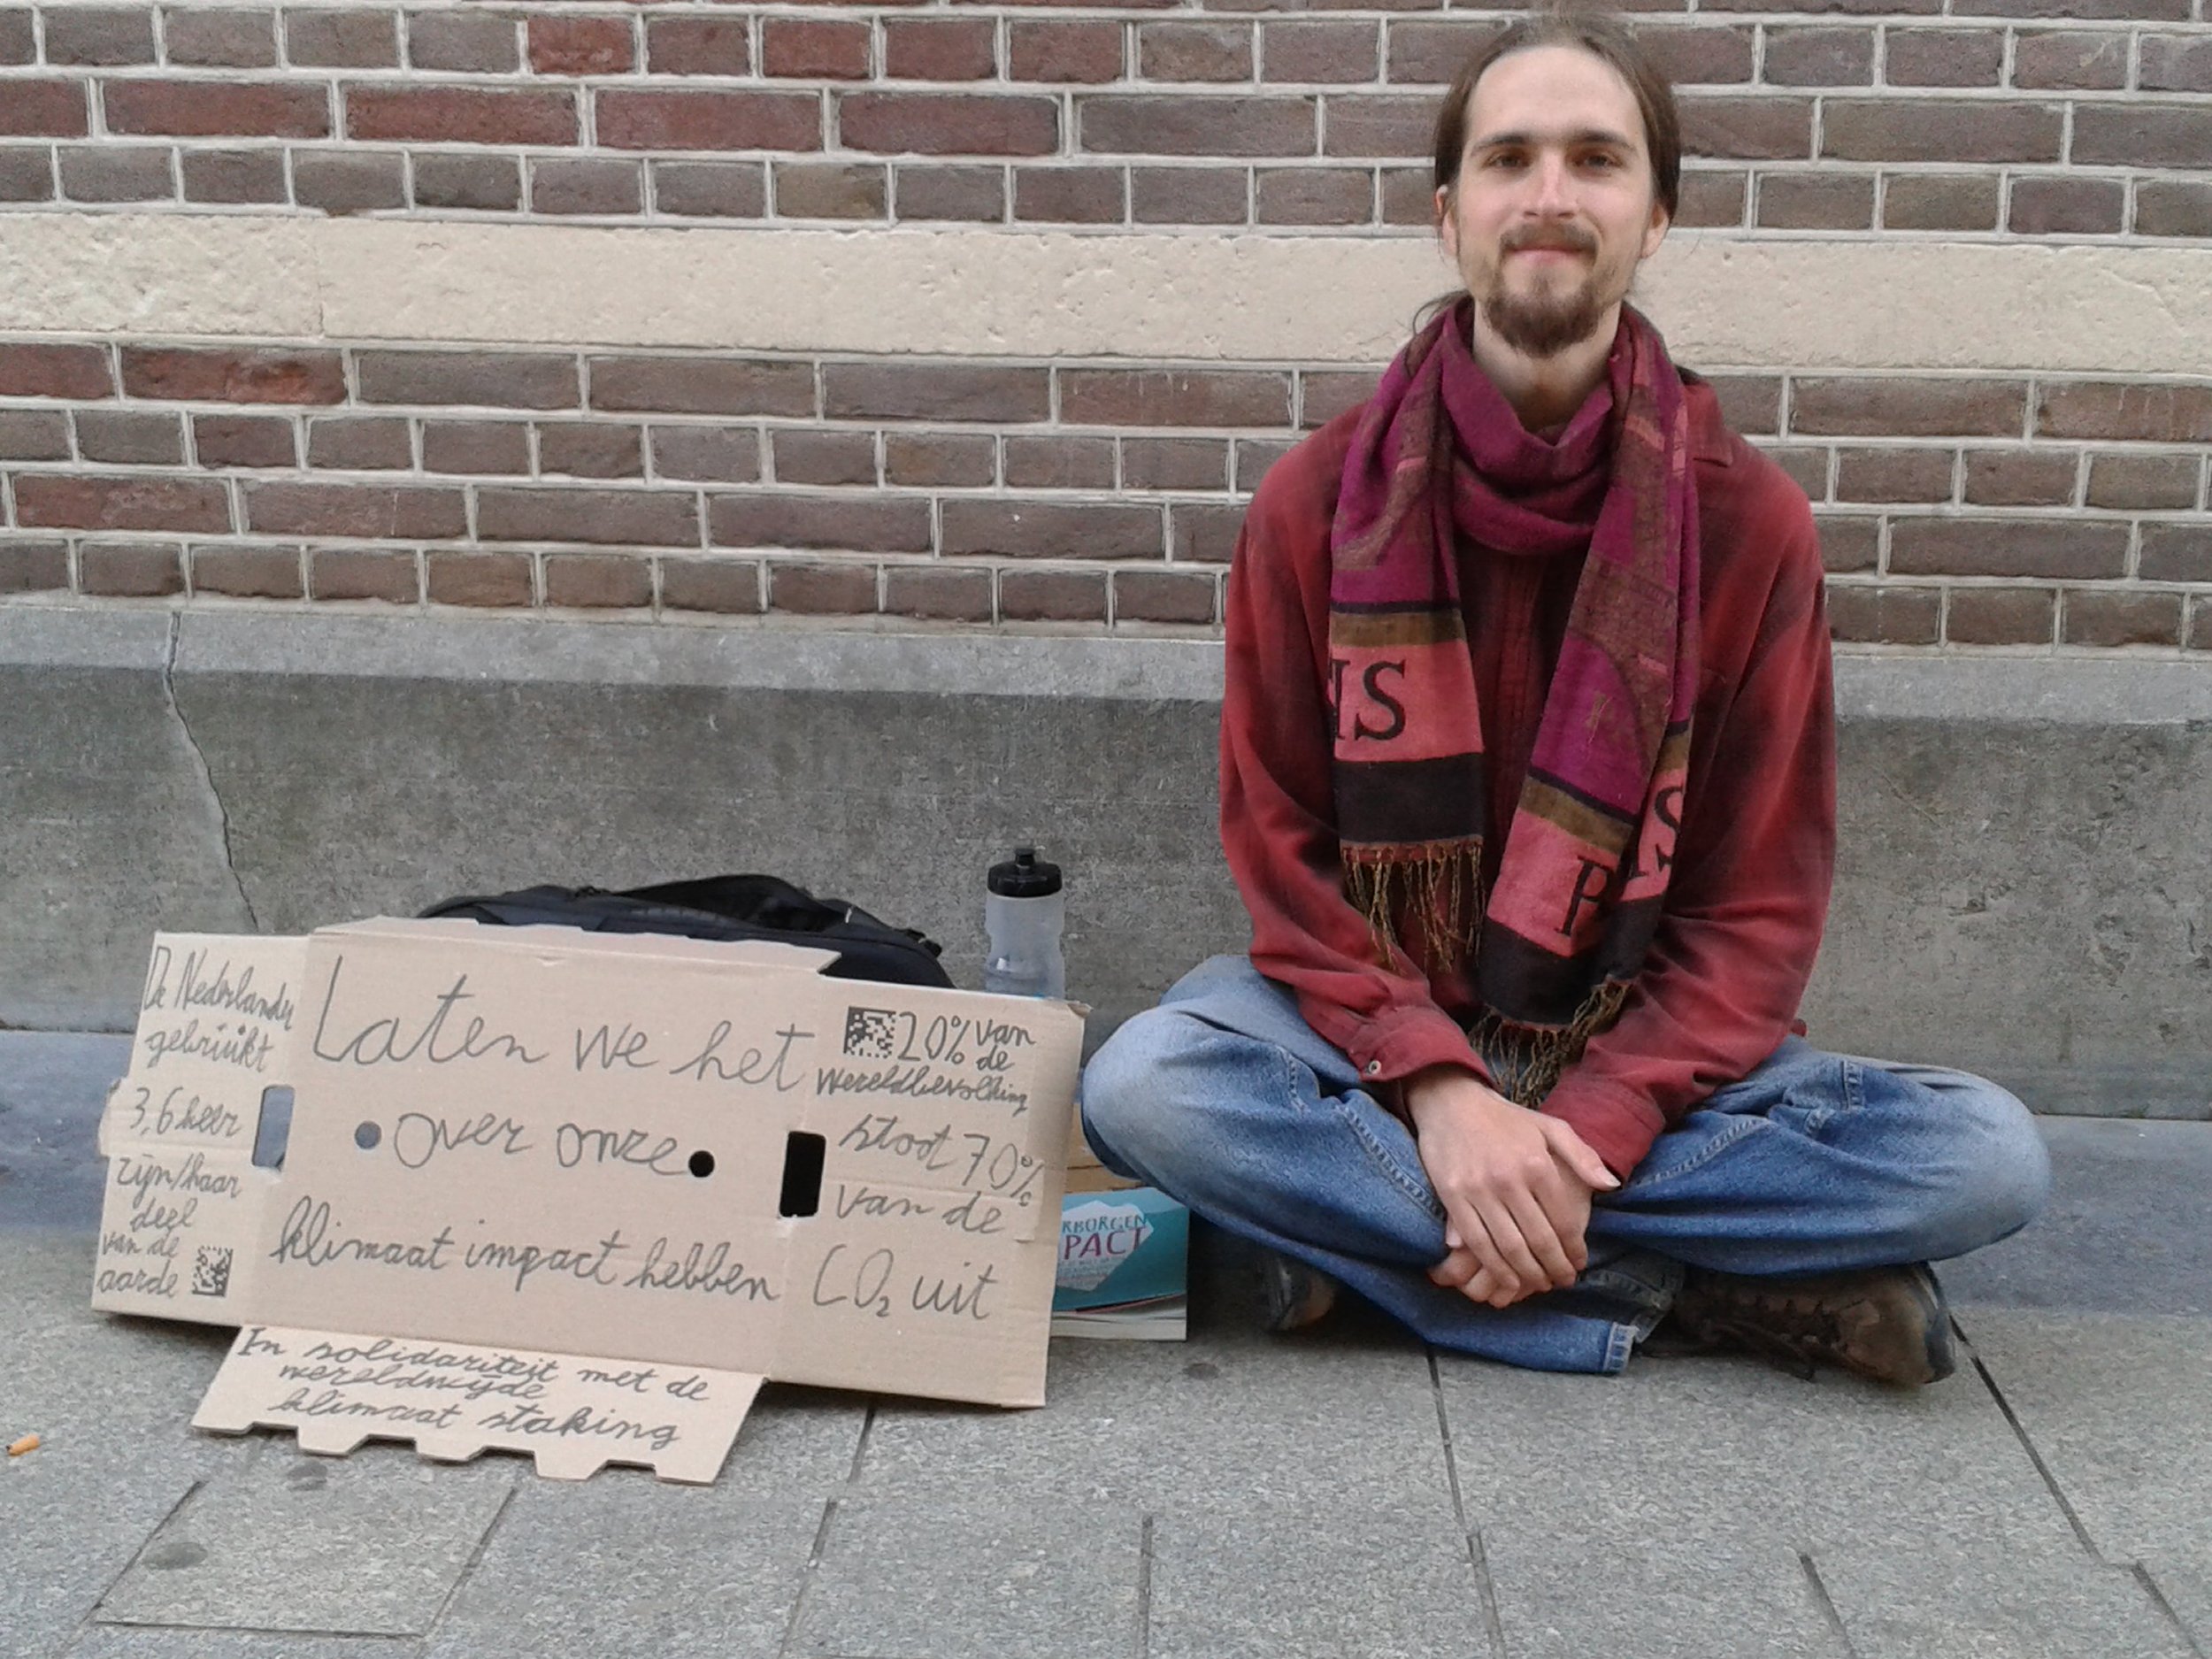 De Nederlander
gebruikt
3,6 keer
zijn/haar
deel
van de
aarde
Laten we het
over onze
klimaat impact hebben
20% van
de
wereldbevolking
stoot 70%
van de
CO₂ uit
In solidariteit met de
wereldwijde
klimaat staking
RBORGEN
PACT
IS
P
S